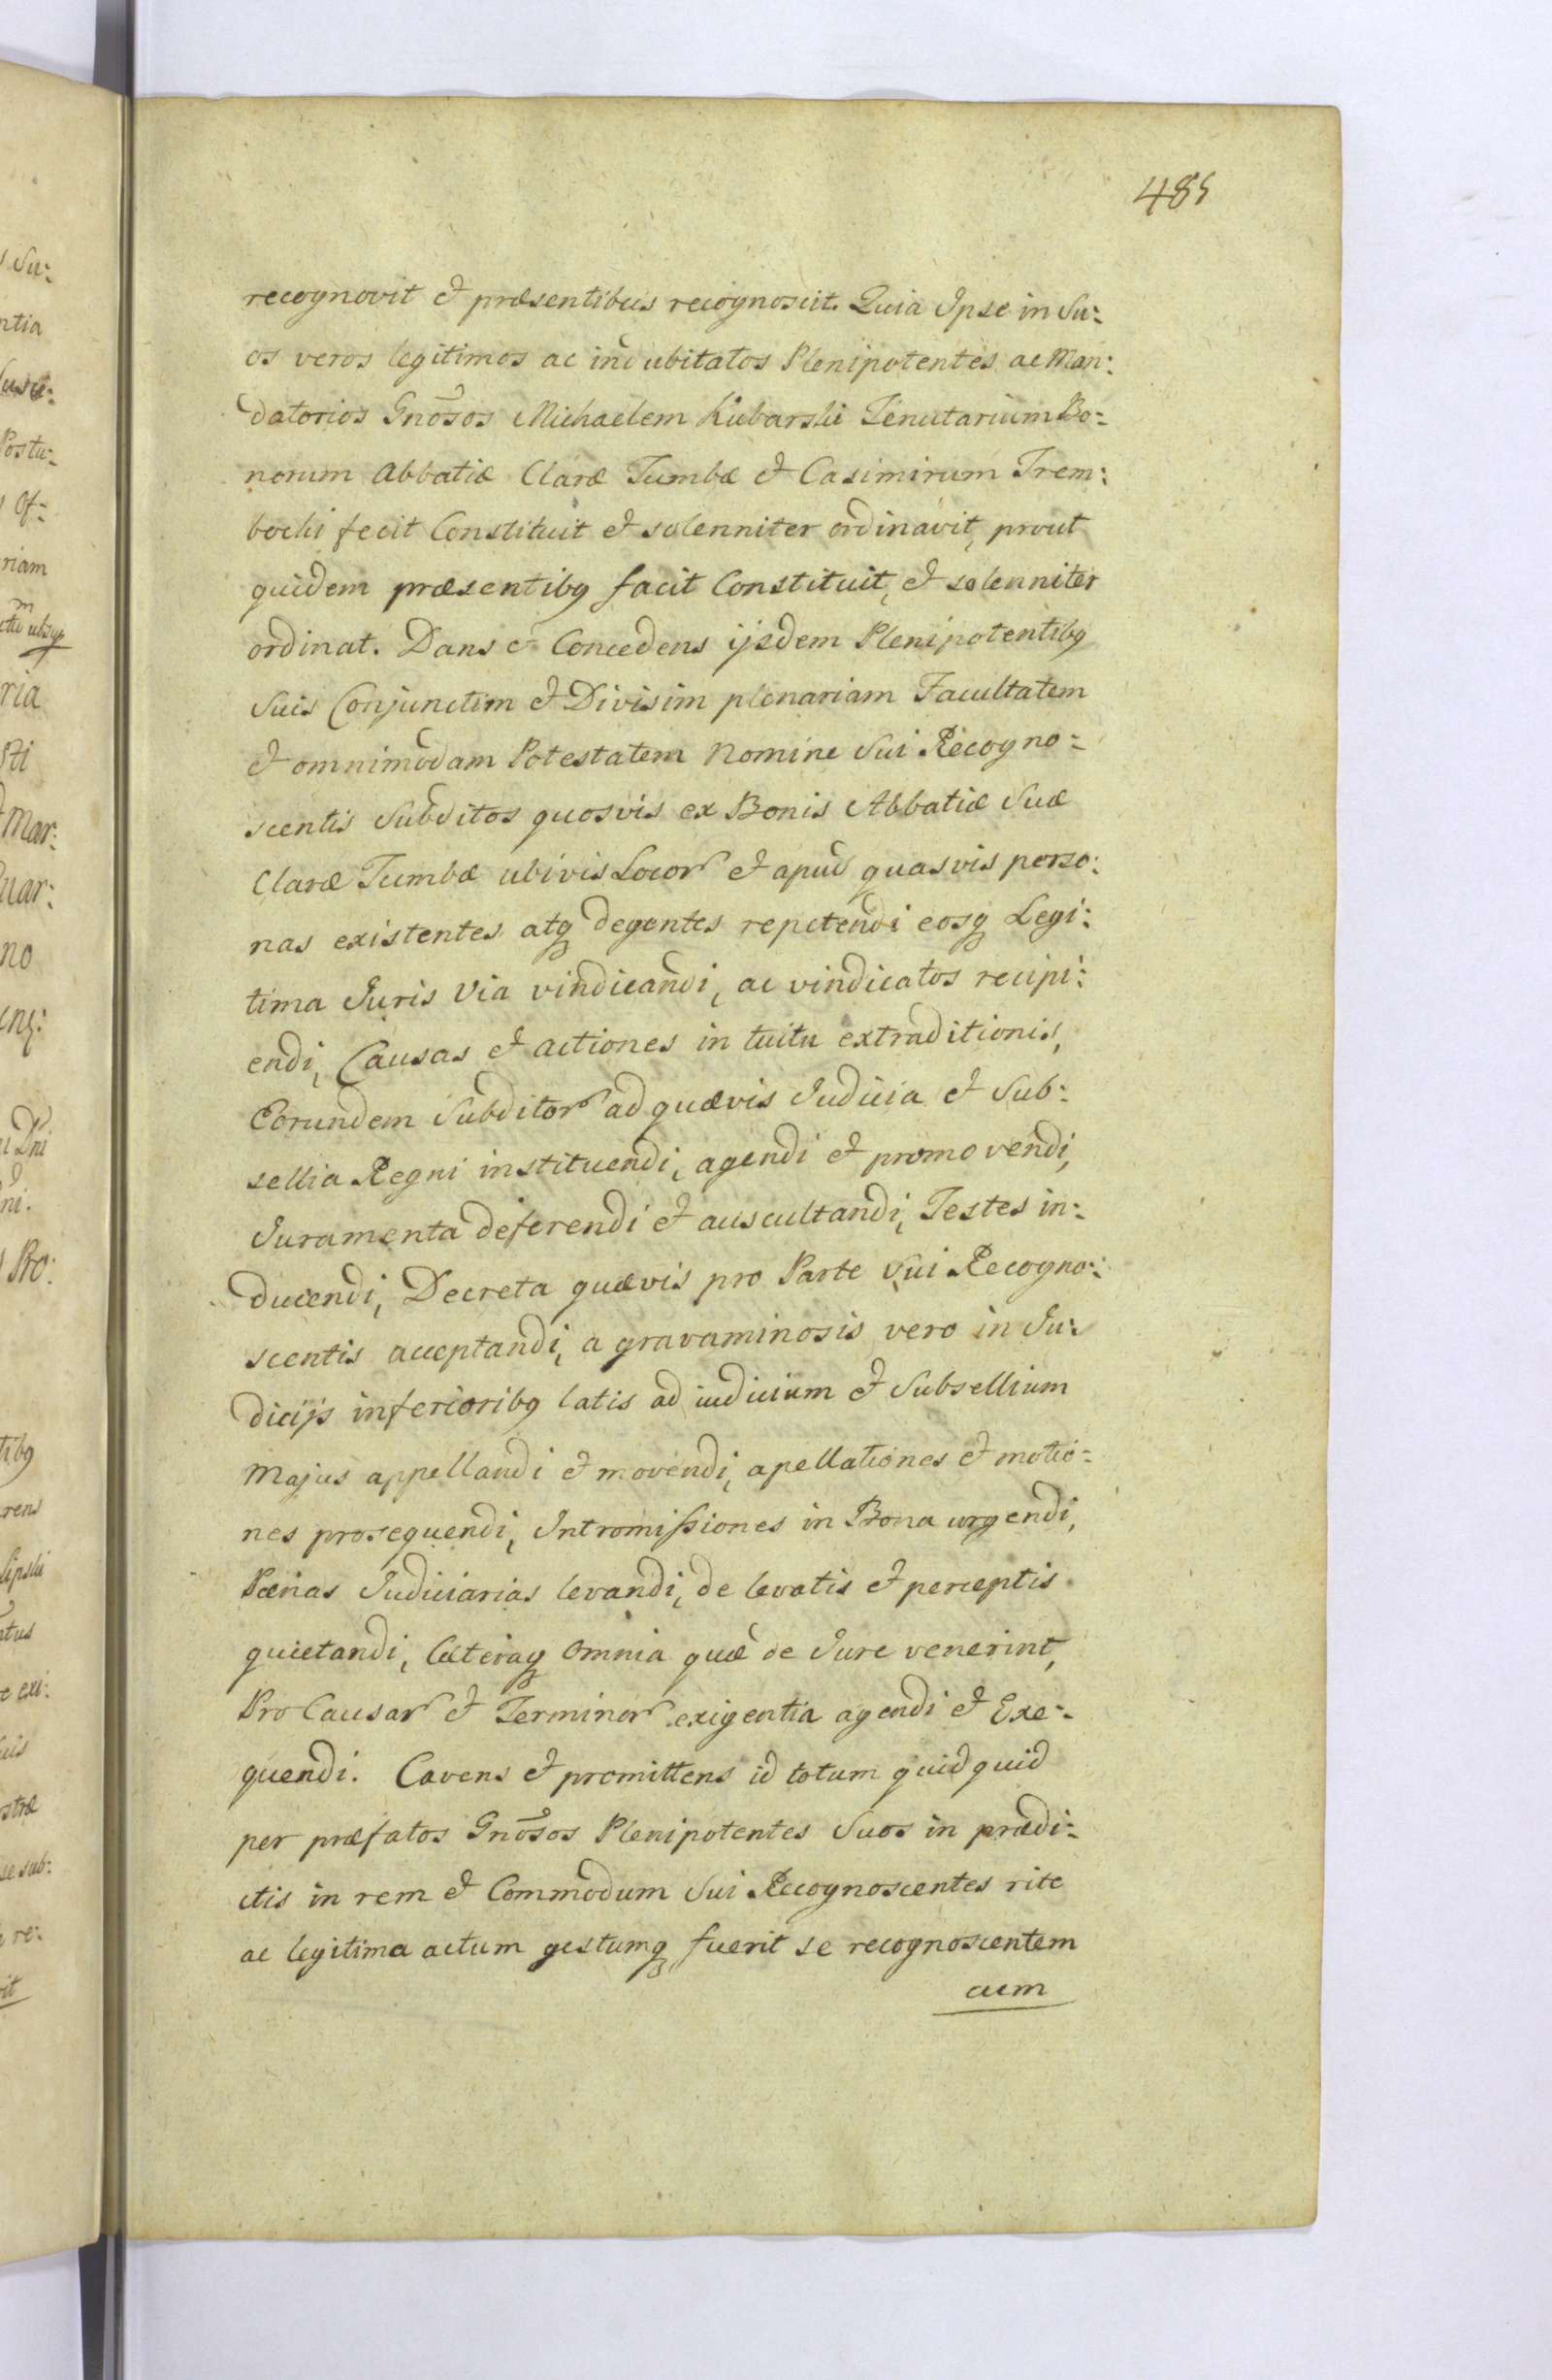 485
recognovit et præsentibus recognoscit. Quia Ipse in Su:
os veros legitimos ac indubitatos Plenipotentes ac Man:
datorios Gnõsos Michaelem Kubarski Tenutarium Bo=
norum Abbatiæ Claræ Tumbæ et Casimirum Trem:
becki fecit Constituit et solenniter ordinavit, prout
quidem præsentibq facit Constituit, et solenniter
ordinat. Dans et Concedens ijsdem Plenipotentibq
Suis Conjunctim et Divisim plenariam Facultatem
et omnimodam Potestatem Nomine Sui Recogno=
scentis Subditos quosvis ex Bonis Abbatiæ Suæ
Claræ Tumbæ ubivis Locor et apud quasvis perso:
nas existentes atq degentes repetendi eosq Legi:
tima Juris Via vindicandi, ac vindicatos recipi:
endi, Causas et actiones in tuitu extraditionis,
Eorundem Subditor ad quævis Judicia et Sub:
sellia Regni instituendi, agendi et promovendi,
Juramenta deferendi et auscultandi, Testes in:
ducendi, Decreta quævis pro Parte Sui Recogno:
scentis acceptandi, a gravaminosis vero in Ju:
dicijs inferioribq latis ad iudicium et Subsellium
Majus appellandi et movendi, apellationes et motio=
nes prosequendi, Intromissiones in Bona urgendi,
Pænas Judiciarias levandi, de levatis et perceptis
quietandi, Cæteraq Omnia quæ de Jure venerint,
Pro Causar et Terminor exigentia agendi et Exe=
quendi. Cavens et promittens id totum quidquid
per præfatos Gnõsos Plenipotentes Suos in prædi=
ctis in rem et Commodum Sui Recognoscentes rite
ac legitima actum gestumq fuerit se recognoscentem
cum